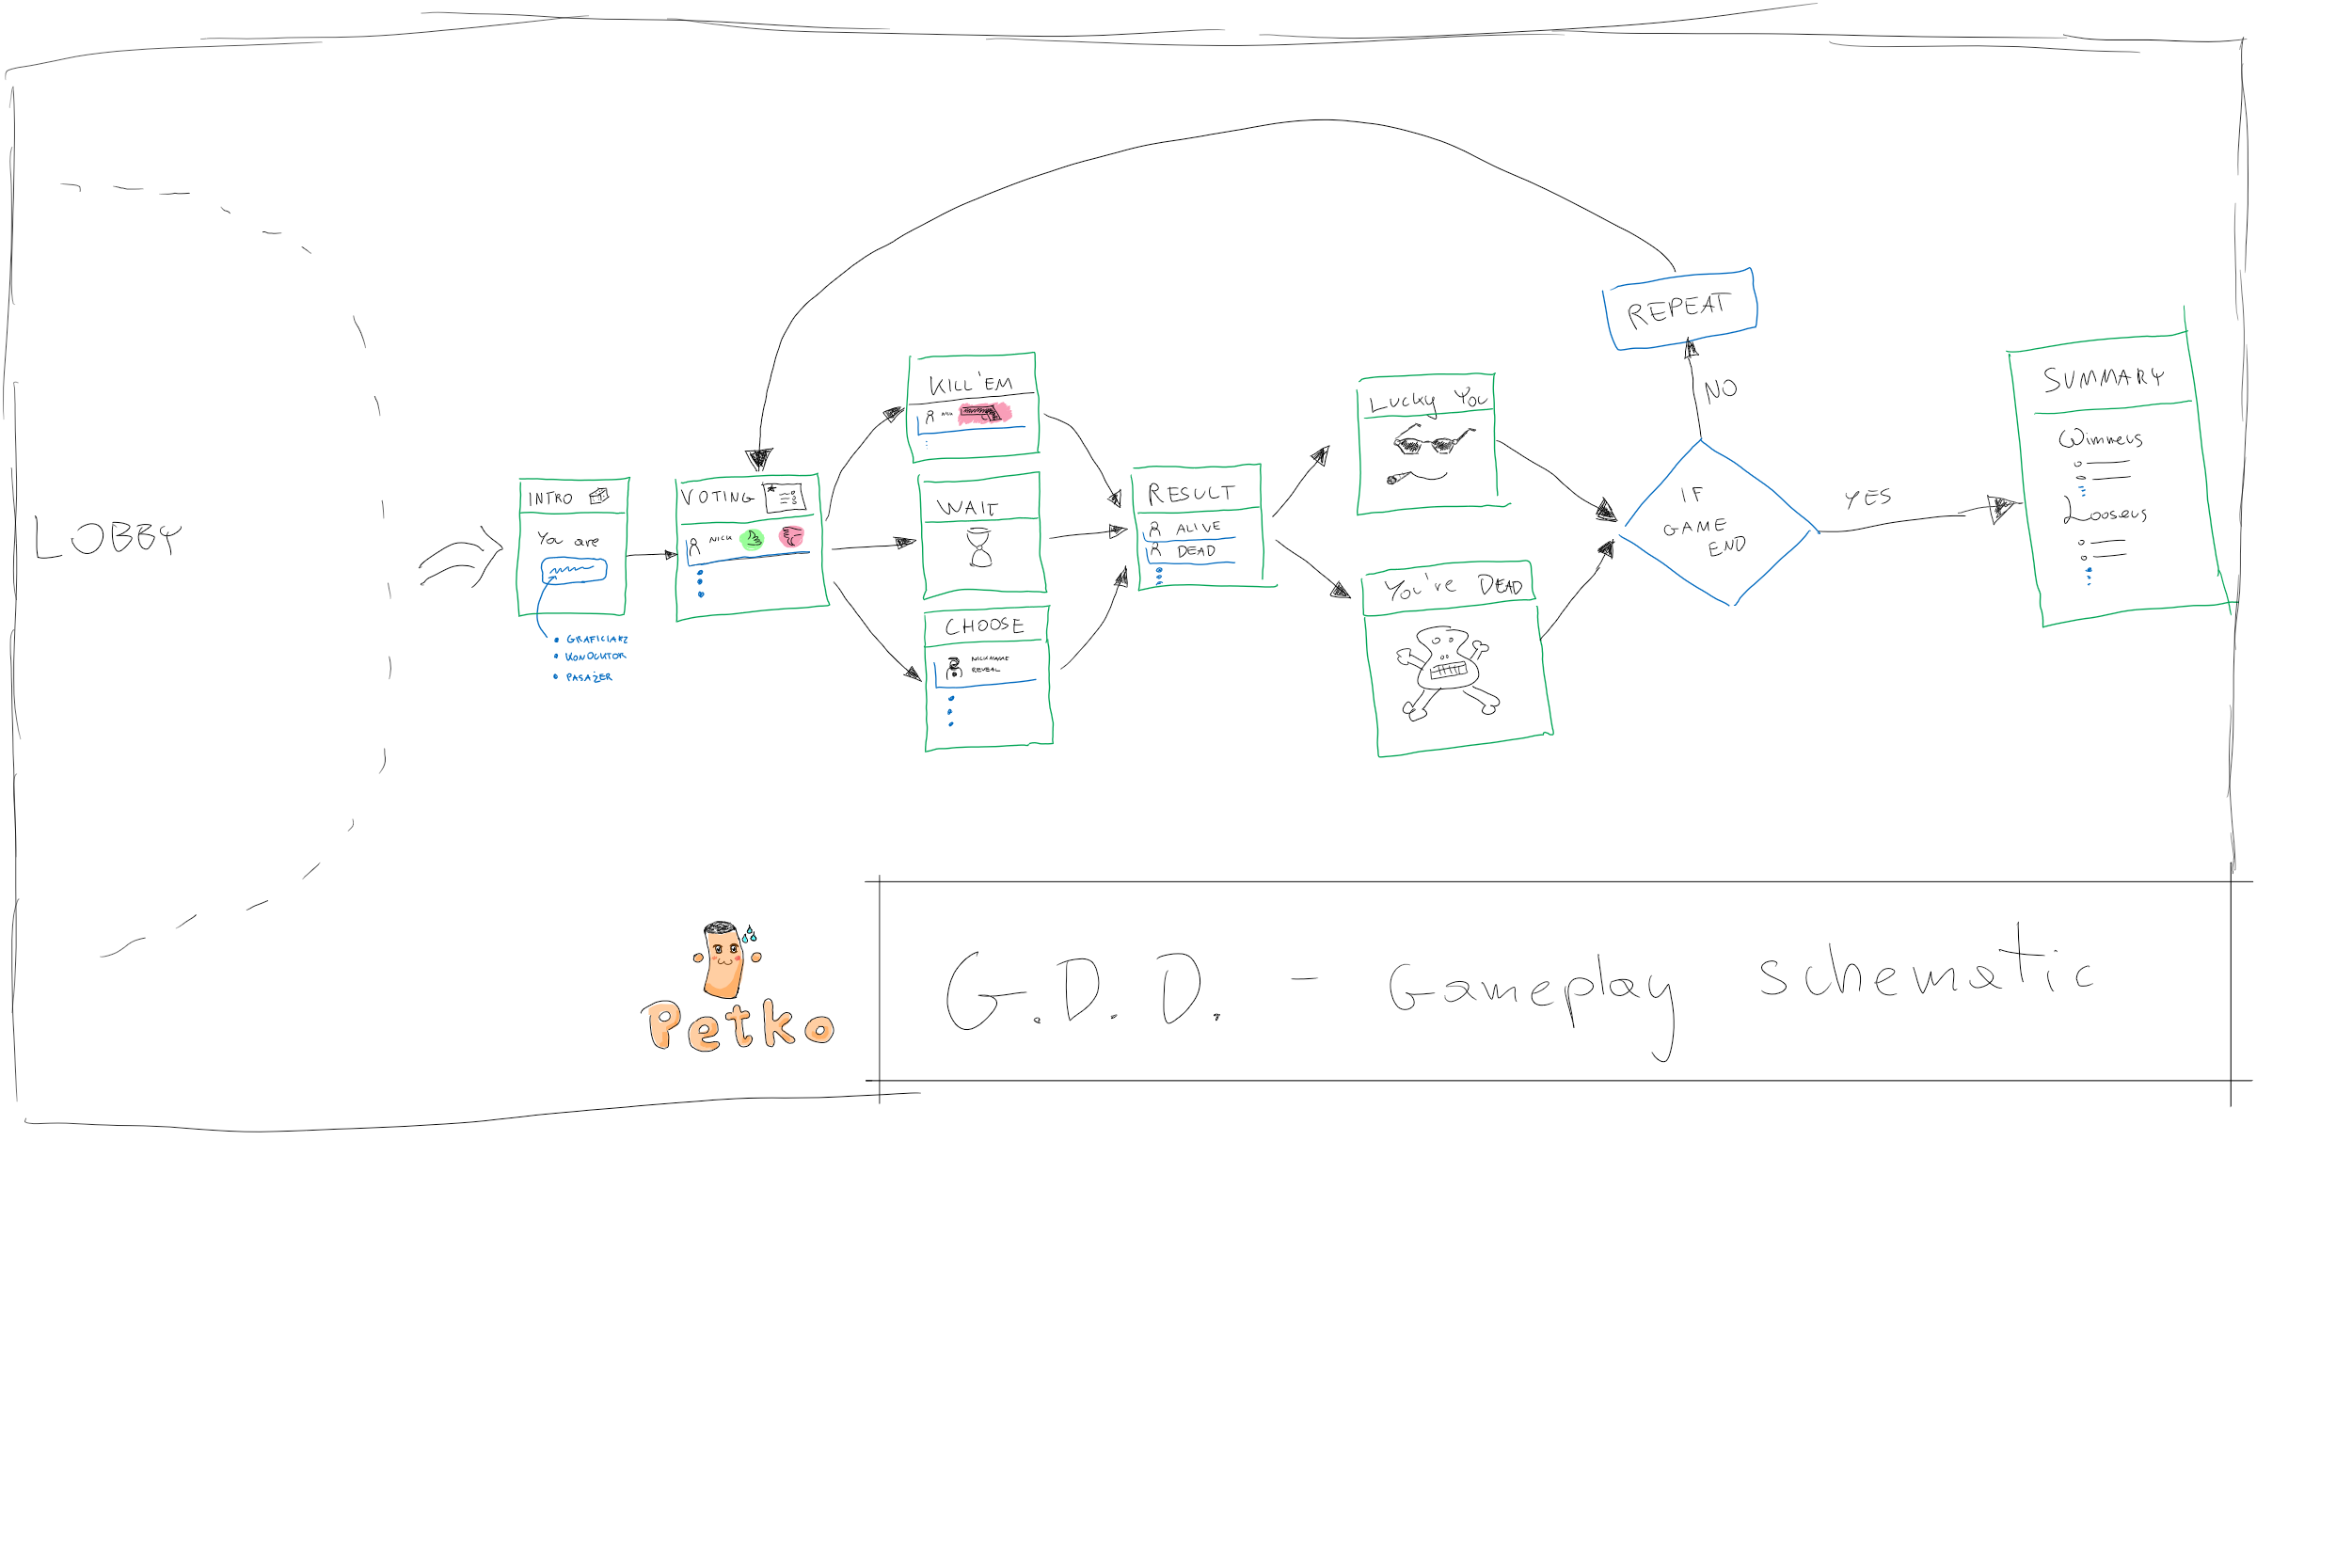 LOBBY
INTRO
You are
GRAFICIARZ
KONDUKTOR
PASAŻER
VOTING
NICK
KILL'EM
NICK
WAIT
CHOOSE
NICKNAME
REVEAL
RESULT
ALIVE
DEAD
Lucky You
You've DEAD
IF
GAME
END
NO
REPEAT
YES
SUMMARY
Winners
Loosers
Petko
G.D.D. - Gameplay schematic